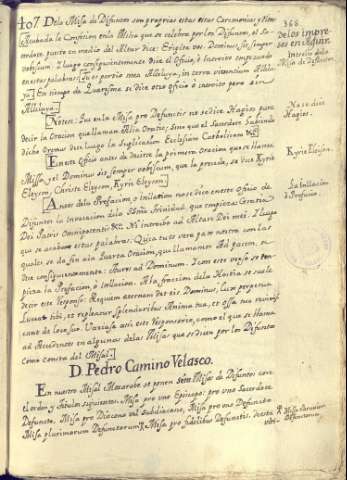 407 De la Misa de Difuntos son proprias estas Ceremonias, y
Acabada la Confesion en la Misa que se celebra por los Difuntos, el Sacer-
dote puesto en medio del Altar dice: Erigite vos. Dominus sit semper
vobiscum. Y luego consiguientemente dice el Oficio, ó Introito empezando
en estas palabras: Tu es portio mea Alleluja, in terra viventium Allelu-
ja. En tiempo de Quaresma se dice este oficio ó introito pero sin
Alleluja.
Notese: Que en la Misa pro Defunctis no se dice Hagios, para
decir la Oracion que llaman Alia Oratio; Sino que el Sacerdote
dicho Oremus dice luego la Suplicacion Ecclesiam Catholicam &c.
En este Oficio antes de decirse la primera Oracion que se llama
Missa, y el Dominus sit semper vobiscum, que la precede, se dice Kyrie
Eleyson, Christe Eleyson, Kyrie Eleyson.
Antes de la Prefacion, ó Inlation no se dice en este oficio de
Difuntos la Invocacion de la Stma Trinidad, que empieza: Gratia
Dei Patris Omnipotentis &c. Ni Introibo ad Altare Dei mei. Y luego
que se acaban estas palabras: Quia tu es vera pax nostra con las
quales se da fin á la Quarta Oracion, que llamamos Ad pacem, se
dice consiguientemente: Aures ad Dominum. Y con este verso se
la Prefacion, ó Inlation. A la fraccion de la Hostia se suele
decir este Responso: Requiem aeternam det eis Dominus, Lux perpetua
Luceat tibi, et repleatur splendoribus Anima tua, et ossa tua
de loco suo. Usase asi este Responsorio, como el que se llama
ad Accedentes en algunas de las Misas que se dicen por los Difuntos
como consta del Misal.
D. Pedro Camino Velasco.
En nuestro Misal Mozarabe se ponen siete Misas de Difuntos con
el orden, y titulos siguientes. Misa pro uno Episcopo: pro uno Sacerdote
Defuncto. Misa pro Diacono vel subdiacono, Misa pro uno Defuncto
Misa plurimorum Defunctorum. Misa pro fidelibus Defunctis,
368
De los
Introito de la
Misa de Difuntos
No se dice
Hagios.
Kyrie Eleyson.
La Inllacion
ó Prefacion.
Missa Parvulorum
Defunctorum.